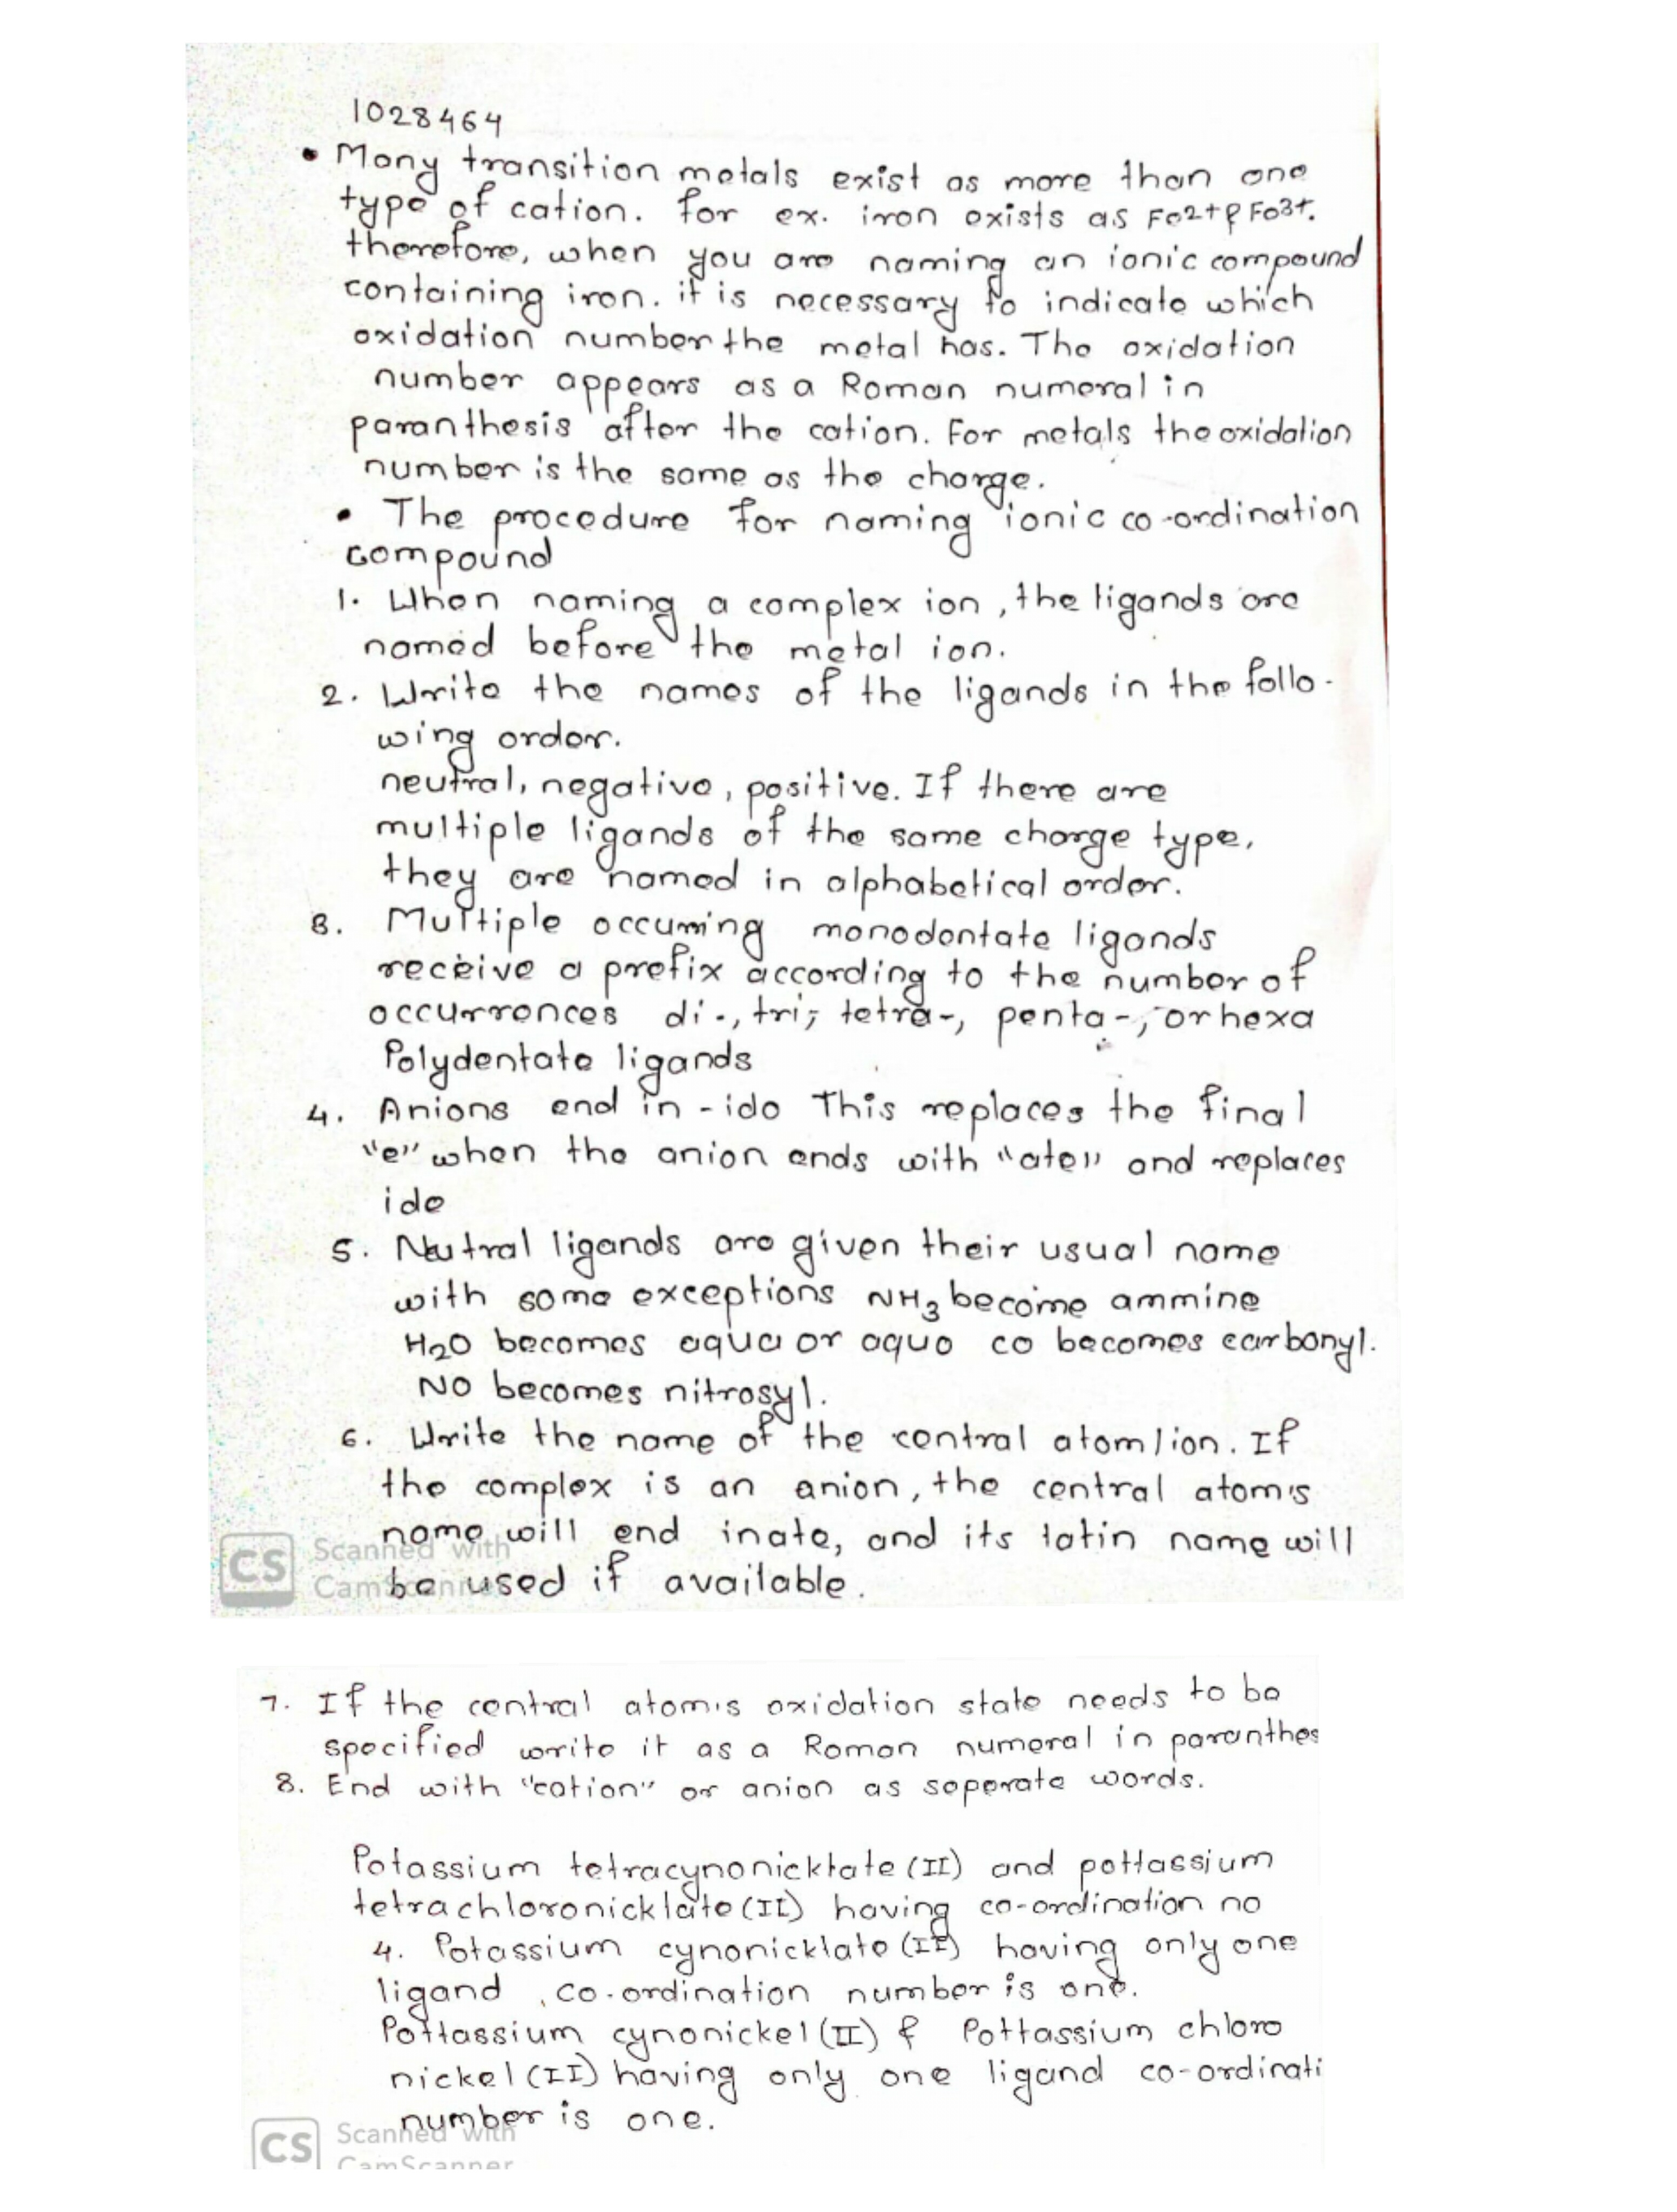 1028464
• Many transition metals exist as more than one
type of cation. for ex. iron exists as Fe2+ & Fe3+.
therefore, when you are naming an ionic compound
containing iron. it is necessary to indicate which
oxidation number the metal has. The oxidation
number appears as a Roman numeral in
paranthesis after the cation. For metals the oxidation
number is the same as the charge.
• The procedure for naming ionic co-ordination
compound
1. When naming a complex ion, the ligands are
named before the metal ion.
2. Write the names of the ligands in the follo-
wing order.
neutral, negative, positive. If there are
multiple ligands of the same charge type,
they are named in alphabetical order.
3. Multiple occuring monodentate ligands
receive a prefix according to the number of
occurrences di-, tri-, tetra-, penta-, or hexa
Polydentate ligands
4. Anions end in -ido This replaces the final
"e" when the anion ends with "ate" and replaces
ide
5. Neutral ligands are given their usual name
with some exceptions NH3 become ammine
H2O becomes aqua or aquo co becomes carbonyl.
NO becomes nitrosyl.
6. Write the name of the central atom/ion. If
the complex is an anion, the central atom's
name will end inate, and its latin name will
be used if available.
CS Scanned with
CamScanner
7. If the central atom's oxidation state needs to be
specified write it as a Roman numeral in paranthes
8. End with "cation" or anion as seperate words.
Potassium tetracynonicktate (II) and pottassium
tetrachloronicklate (II) having co-ordination no
4. Potassium cynonicklate (II) having only one
ligand, co-ordination number is one.
Pottassium cynonickel (II) & Pottassium chloro
nickel (II) having only one ligand co-ordinati
number is one.
CS Scanned with
CamScanner